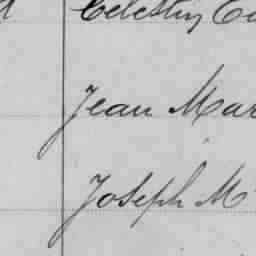 Celestin
Jean Mar
Joseph M